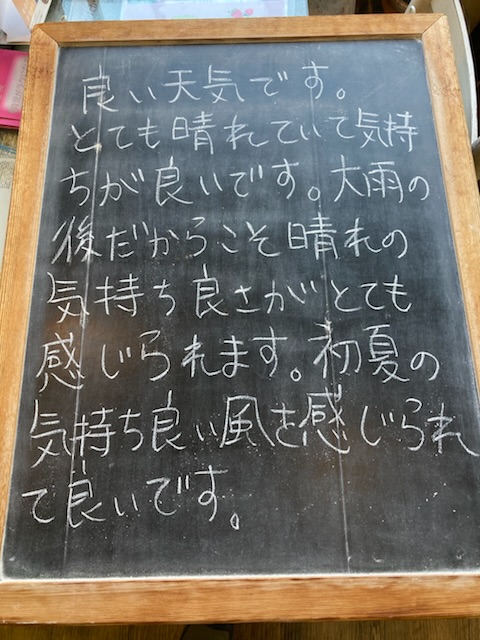 良い天気です。
とても晴れていて気持
ちが良いです。大雨の
後だからこそ晴れの
気持ち良さがとても
感じられます。初夏の
気持ち良い風を感じられ
て良いです。